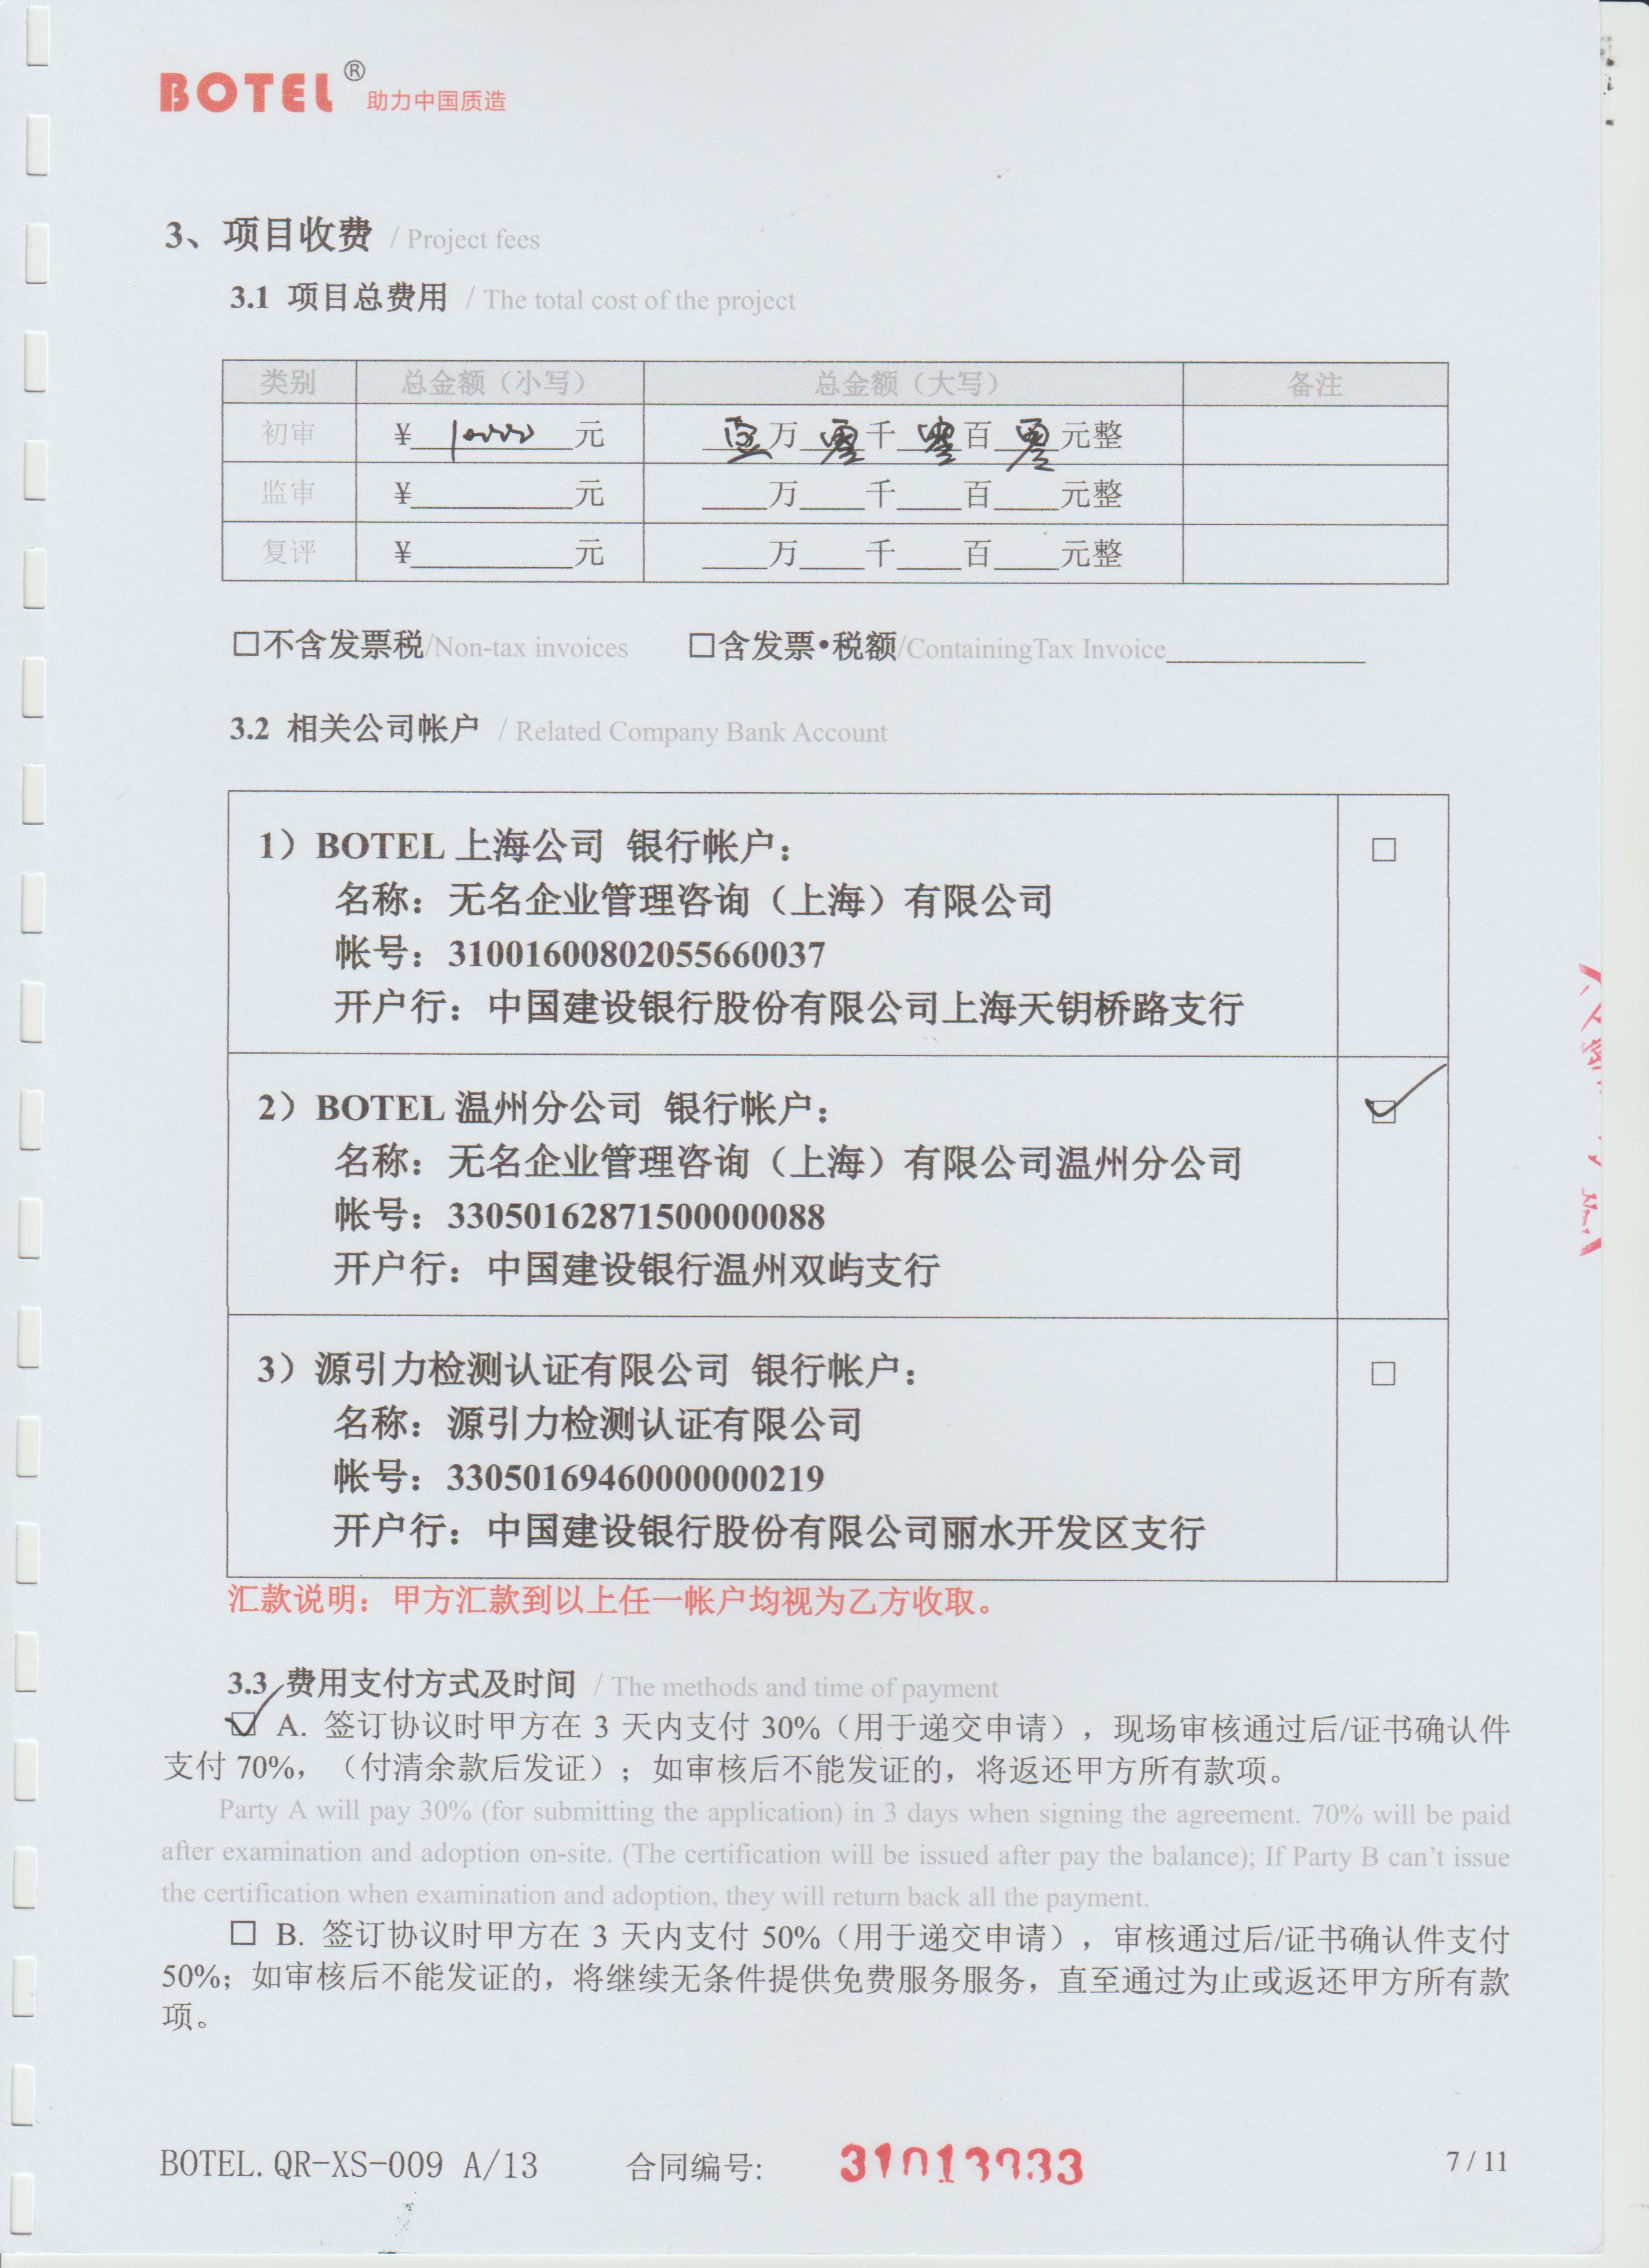 BOTEL® 助力中国质造
3、项目收费 / Project fees
3.1 项目总费用 / The total cost of the project
类别 总金额（小写） 总金额（大写） 备注
初审 ¥ 10000 元 壹万 零千 零百 零元整
监审 ¥________元 ____万____千____百____元整
复评 ¥________元 ____万____千____百____元整
□不含发票税/Non-tax invoices □含发票•税额/ContainingTax Invoice____________
3.2 相关公司帐户 / Related Company Bank Account
1）BOTEL 上海公司 银行帐户： □
名称：无名企业管理咨询（上海）有限公司
帐号：31001600802055660037
开户行：中国建设银行股份有限公司上海天钥桥路支行
2）BOTEL 温州分公司 银行帐户： ☑
名称：无名企业管理咨询（上海）有限公司温州分公司
帐号：33050162871500000088
开户行：中国建设银行温州双屿支行
3）源引力检测认证有限公司 银行帐户： □
名称：源引力检测认证有限公司
帐号：33050169460000000219
开户行：中国建设银行股份有限公司丽水开发区支行
汇款说明：甲方汇款到以上任一帐户均视为乙方收取。
3.3 费用支付方式及时间 / The methods and time of payment
☑ A. 签订协议时甲方在 3 天内支付 30%（用于递交申请），现场审核通过后/证书确认件
支付 70%，（付清余款后发证）；如审核后不能发证的，将返还甲方所有款项。
Party A will pay 30% (for submitting the application) in 3 days when signing the agreement. 70% will be paid
after examination and adoption on-site. (The certification will be issued after pay the balance); If Party B can't issue
the certification when examination and adoption, they will return back all the payment.
□ B. 签订协议时甲方在 3 天内支付 50%（用于递交申请），审核通过后/证书确认件支付
50%；如审核后不能发证的，将继续无条件提供免费服务服务，直至通过为止或返还甲方所有款
项。
BOTEL.QR-XS-009 A/13 合同编号: 7 / 11